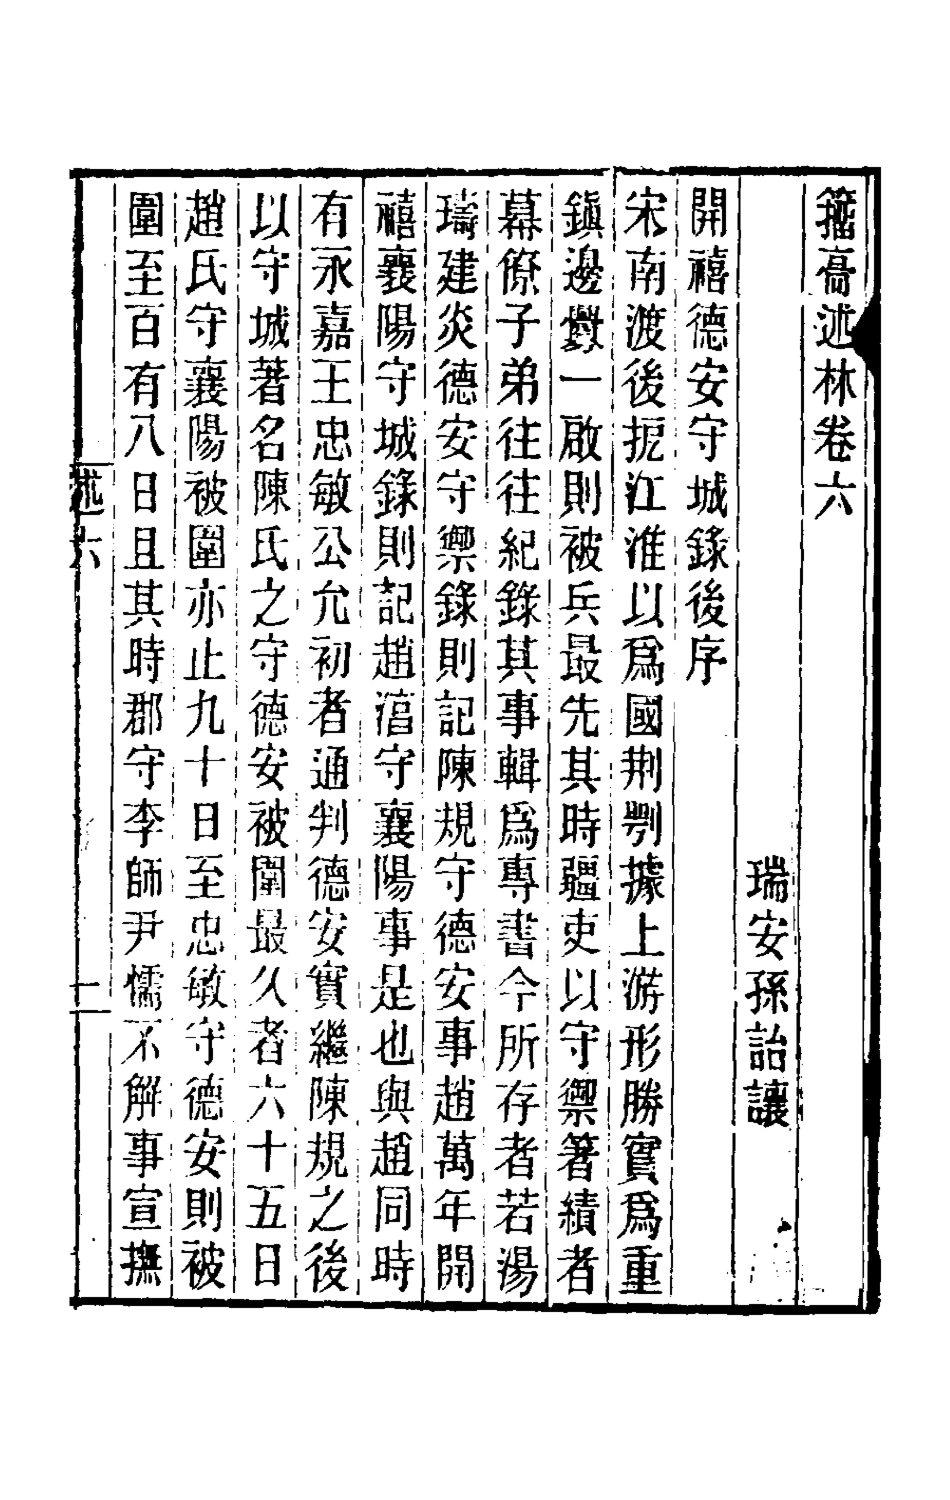 籒高述林卷六
瑞安孫詒讓
開禧德安守城錄後序
宋南渡後扼江淮以爲國荆鄂據上游形勝實爲重
鎭邊釁一啟則被兵最先其時疆吏以守禦著績者
幕僚子弟往往紀錄其事輯爲專書今所存者若湯
璹建炎德安守禦錄則記陳規守德安事趙萬年開
禧襄陽守城錄則記趙淳守襄陽事是也與趙同時
有永嘉王忠敏公允初者通判德安實繼陳規之後
以守城著名陳氏之守德安被圍最久者六十五日
趙氏守襄陽被圍亦止九十日至忠敏守德安則被
圍至百有八日且其時郡守李師尹懦不解事宣撫
述六
一